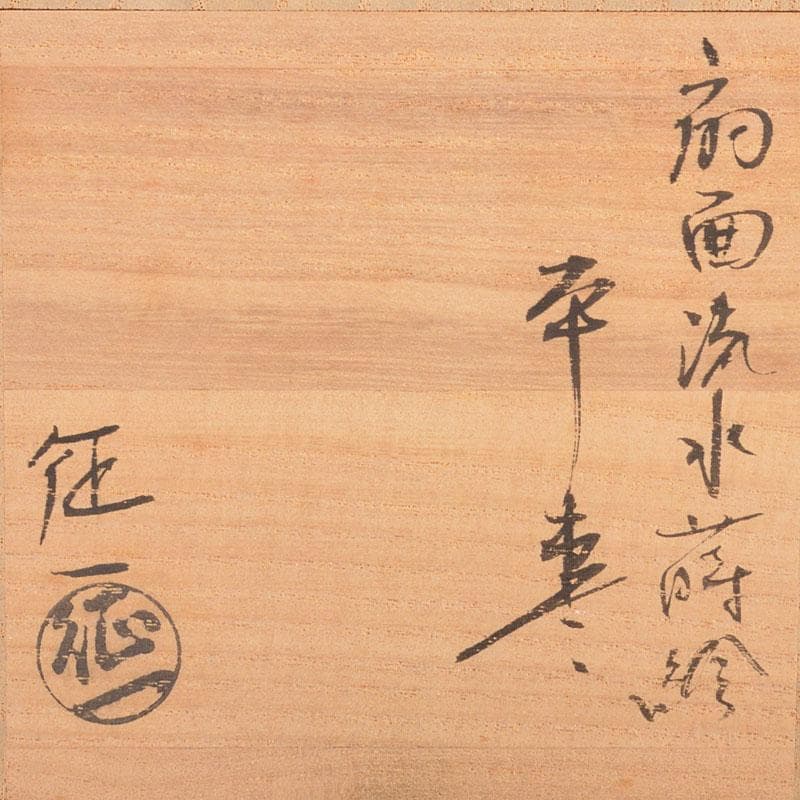 扇面流水蒔絵
平棗
征一
征一